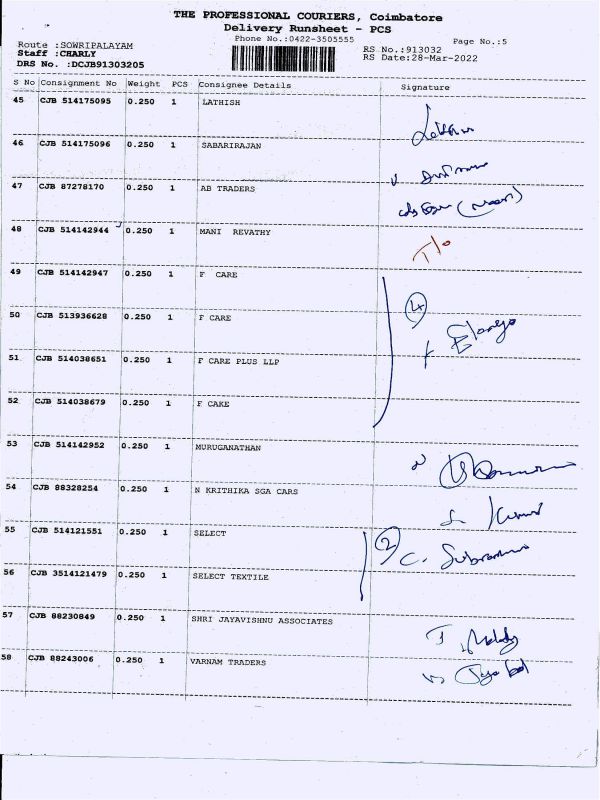 THE PROFESSIONAL COURIERS, Coimbatore
Delivery Runsheet - PCS
Phone No.:0422-3505555
Page No.:5
Route :SOWRIPALAYAM
Staff :CHARLY
DRS No. :DCJB91303205
RS No.:913032
RS Date:28-Mar-2022
S No Consignment No Weight PCS Consignee Details Signature
45 CJB 514175095 0.250 1 LATHISH
46 CJB 514175096 0.250 1 SABARIRAJAN
47 CJB 87278170 0.250 1 AB TRADERS
48 CJB 514142944 0.250 1 MANI REVATHY
49 CJB 514142947 0.250 1 F CARE
4
50 CJB 513936628 0.250 1 F CARE
51 CJB 514038651 0.250 1 F CARE PLUS LLP
52 CJB 514038679 0.250 1 F CAKE
53 CJB 514142952 0.250 1 MURUGANATHAN
54 CJB 88328254 0.250 1 N KRITHIKA SGA CARS
55 CJB 514121551 0.250 1 SELECT
2
56 CJB 3514121479 0.250 1 SELECT TEXTILE
57 CJB 88230849 0.250 1 SHRI JAYAVISHNU ASSOCIATES
58 CJB 88243006 0.250 1 VARNAM TRADERS